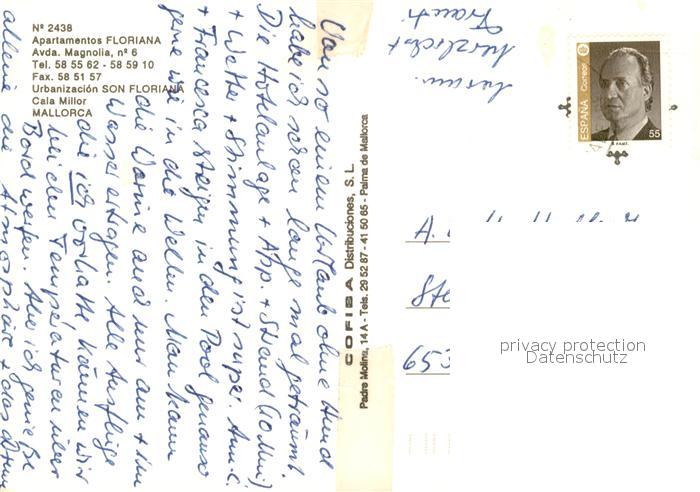 Nº 2438
Apartamentos FLORIANA
Avda. Magnolia, nº 6
Tel. 58 55 62 - 58 59 10
Fax. 58 51 57
Urbanización SON FLORIANA
Cala Millor
MALLORCA
Von so einem Urlaub ohne Hund
habe ich schon lange mal geträumt.
Die Hotelanlage + App. + Strand (10 Min.)
+ Wetter + Stimmung ist super. Ann-C.
+ Francesca steigen in den Pool genauso
gerne wie in die Wellen. Man kann
die Wärme auch nur am + im
Wasser ertragen. Alle Ausflüge
die ich vorhatte, können wir
bei den Temperaturen über
Bord werfen. Aber ich genieße
alleine die Atmosphäre + das Drum
herum.
Herzlichst
COFIBA Distribuciones, S.L.
Padre Molina, 14 A - Tels. 29 52 87 - 41 50 65 - Palma de Mallorca
ESPAÑA Correos
55
A.
Ste
653
privacy protection
Datenschutz